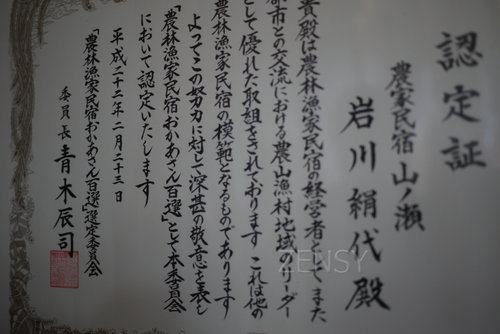 認定証
農家民宿 山ノ瀬
岩川絹代殿
貴殿は農林漁家民宿の経営者としてまた
都市との交流における農山漁村地域のリーダー
として優れた取組をされております これは他の
農林漁家民宿の模範となるものであります
よってこの努力に対し深甚の敬意を表し
「農林漁家民宿おかあさん百選」として本委員会
において認定いたします
平成二十二年二月二十三日
「農林漁家民宿おかあさん百選」選定委員会
委員長 青木辰司
ZENSY